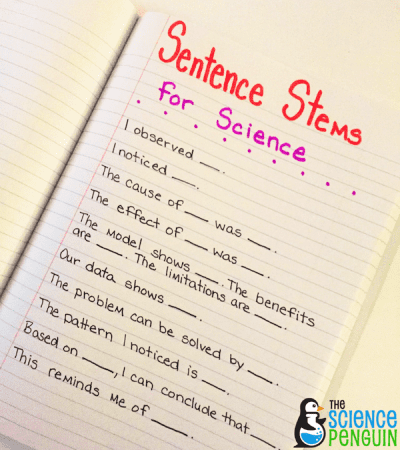 Sentence Stems
for Science
I observed ___.
I noticed ___.
The cause of ___ was ___.
The effect of ___ was ___.
The model shows ___. The benefits
are ___. The limitations are ___.
Our data shows ___.
The problem can be solved by ___.
The pattern I noticed is ___.
Based on ___, I can conclude that ___.
This reminds me of ___.
THE
SCIENCE
PENGUIN